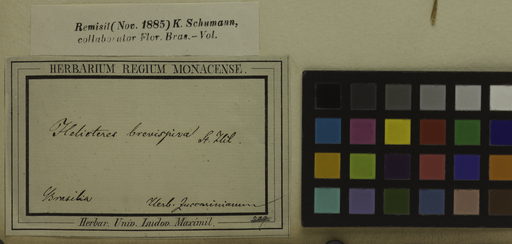 Remisit (Nov. 1885) K. Schumann,
collaborator Flor. Bras. — Vol.
HERBARIUM REGIUM MONACENSE.
Helicteres brevispira St. Hil.
Brasilia
Herb. Zuccarinianum
Herbar. Univ. Ludov. Maximil.